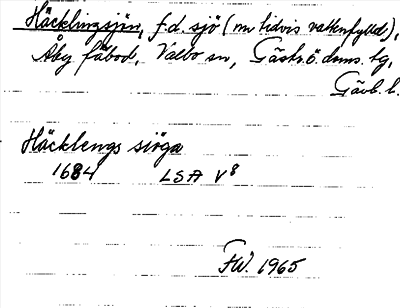 Häcklingsjön, f.d. sjö (nu tidvis vattenfylld),
Åby fäbod, Valbo sn, Gästr. ö. doms. tg,
Gävl. l.
Häcklengs siöga
1684 LSA V8
FW. 1965